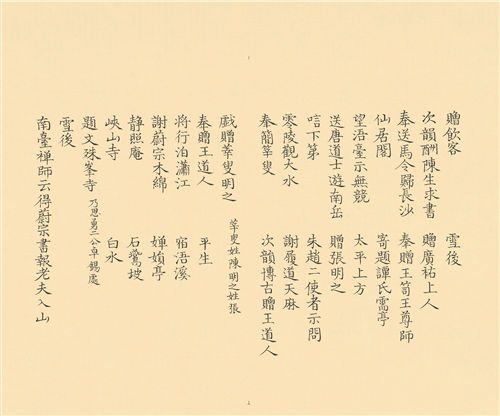 贈飲客 雪後
次韻酬陳生求書 贈廣祐上人
奉送馬令歸長沙 奉贈王笥王尊師
仙居閣 寄題譚氏需亭
望浯臺示無競 太平上方
送唐道士遊南岳 贈張明之
唁下第 朱趙二使者示問
零陵觀大水 謝履道天麻
奉簡莘叟 次韻博古贈王道人
戲贈莘叟明之 莘叟姓陳明之姓張
奉贈王道人 平生
將行泊瀟江 宿浯溪
謝蔚宗木綿 嬋娟亭
静照庵 石鶯坡
峽山寺 白水
題文殊峯寺 乃思勇二公卓錫處
雪後
南臺禅師云得蔚宗書報老夫入山